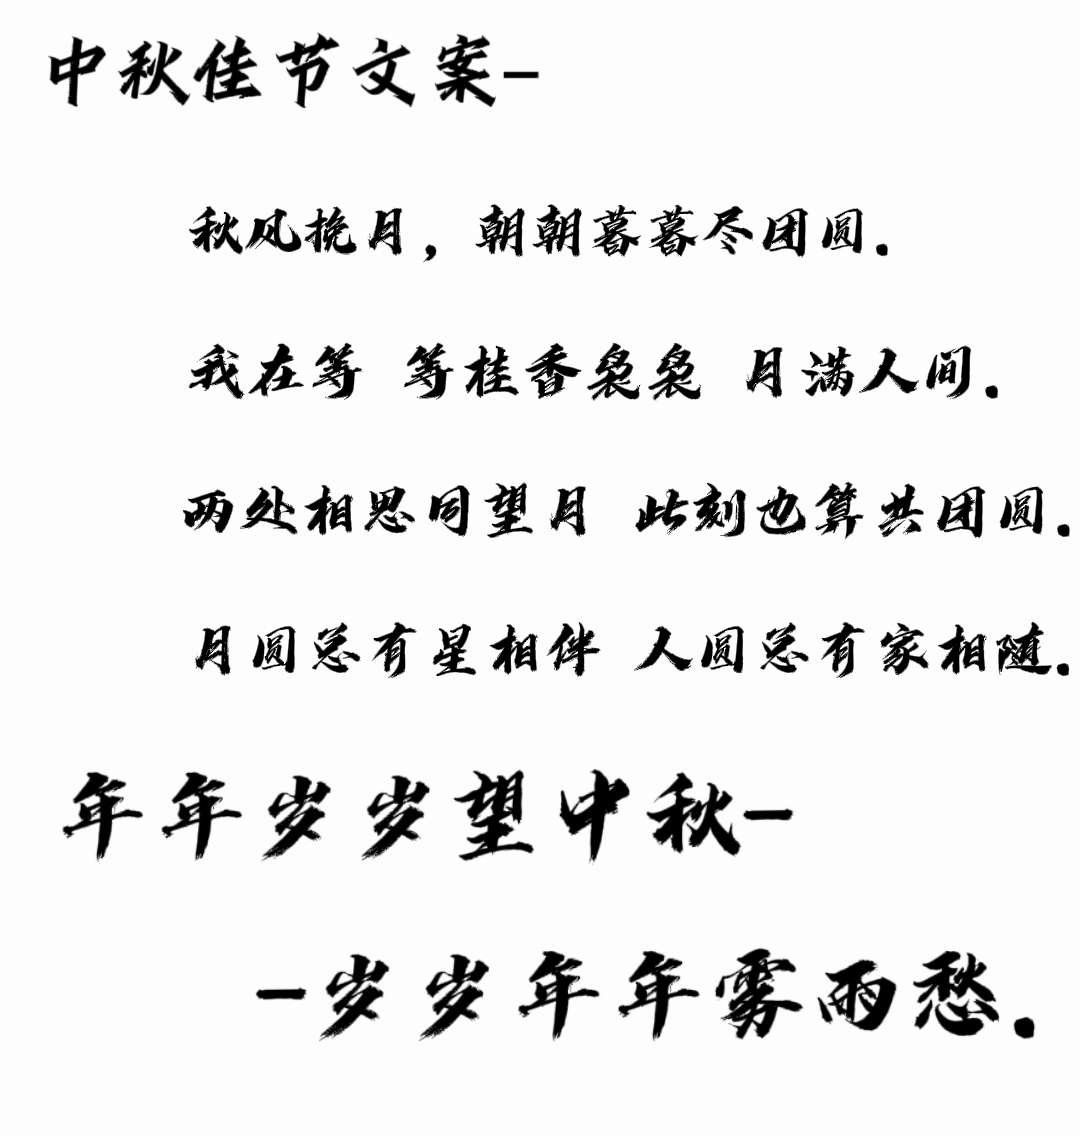 中秋佳节文案-
秋风挽月，朝朝暮暮尽团圆.
我在等 等桂香袅袅 月满人间.
两处相思同望月 此刻也算共团圆.
月圆总有星相伴 人圆总有家相随.
年年岁岁望中秋-
-岁岁年年雾雨愁.